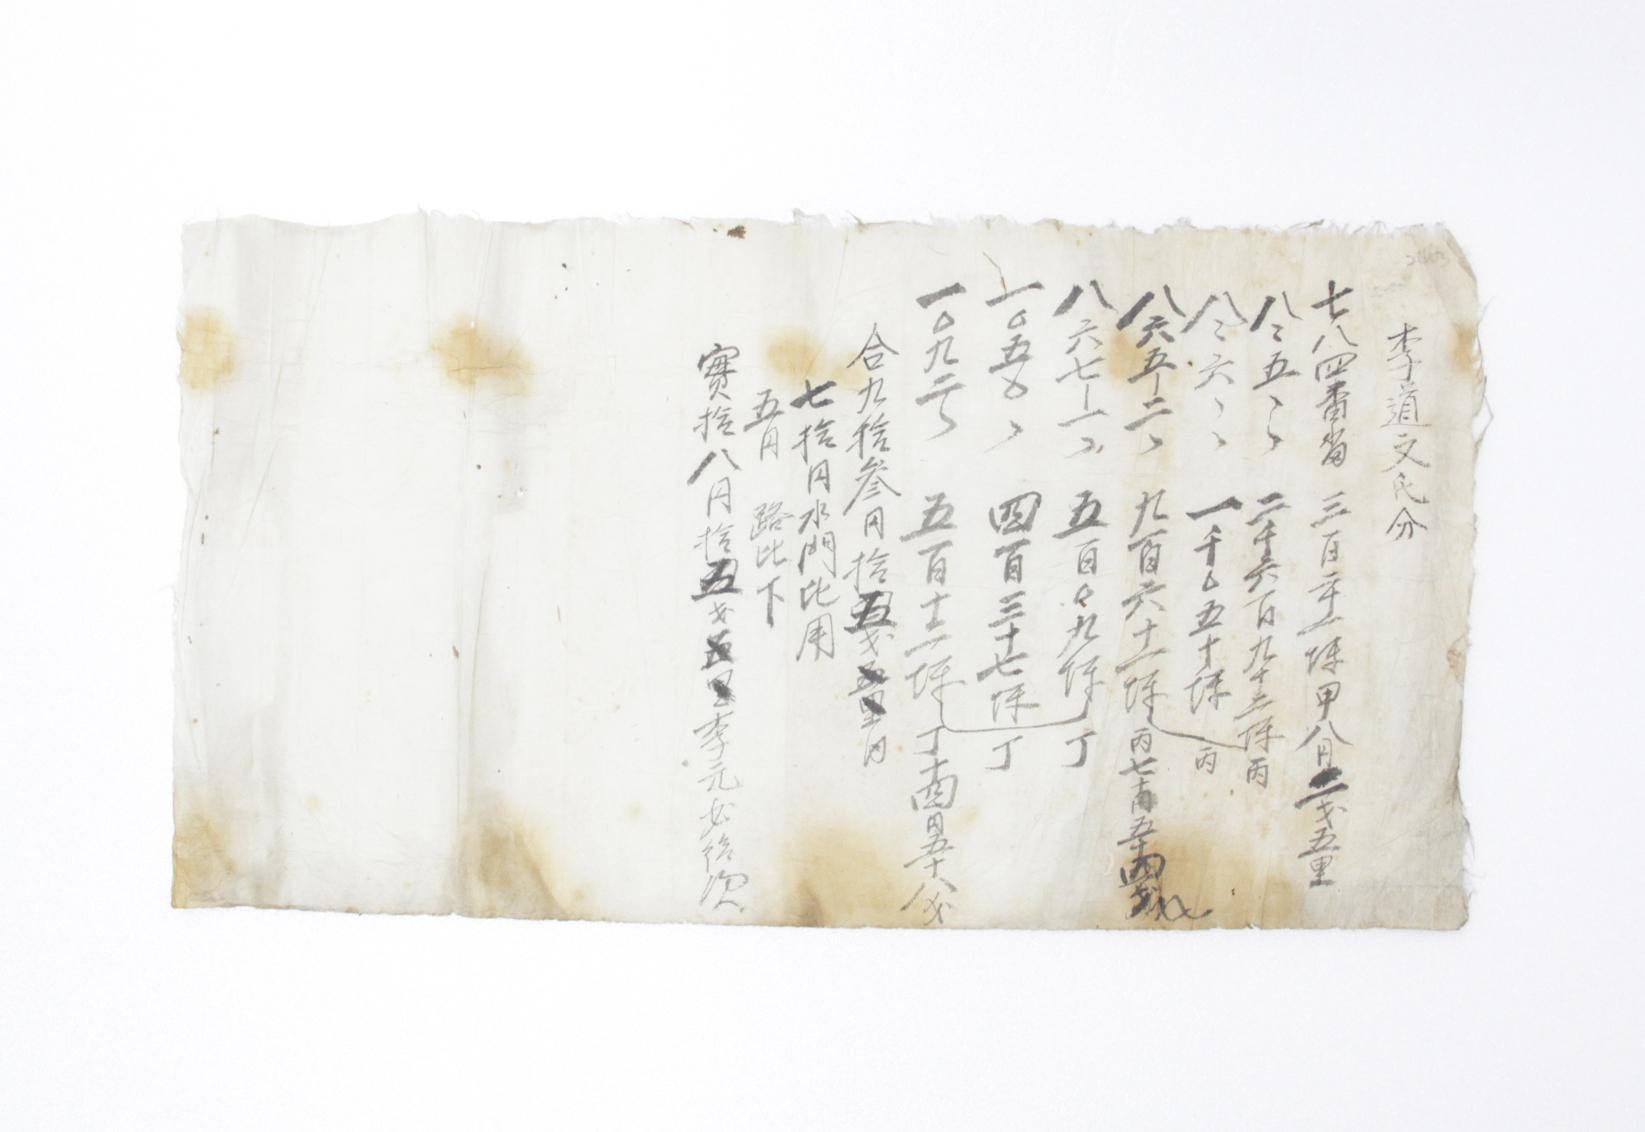 李道文氏分
七八四番畓 三百二十一坪 甲 八円二戔五里
八ミ五〻〻 二千六百九十三坪 丙
八ミ六〻〻 一千〇五十坪 丙
八六五ノ二〻 九百六十一坪 丙 七十円五十四戔
八六七ノ一〻 五百〇九坪 丁
一〇五〇〻 四百三十七坪 丁
一〇九二〻 五百十一坪 丁 円五十八戔
合九拾參円拾五戔五里內
七拾円水門比用
五円 路比下
實拾八円拾五戔五里 李元